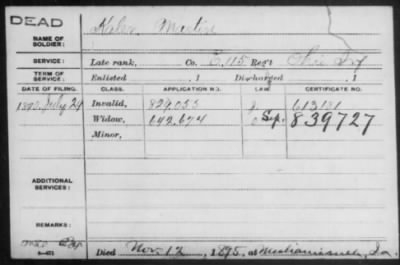 DEAD
NAME OF SOLDIER: Martin
SERVICE: Late rank, Co. E, 115 Reg't Ohio Inf
TERM OF SERVICE: Enlisted , 1 Discharged , 1
DATE OF FILING. CLASS. APPLICATION NO. LAW. CERTIFICATE NO.
July 24 Invalid, 829.055 613181
Widow, 642.674 Sep. 839727
Minor,
ADDITIONAL SERVICES:
REMARKS:
Died Nov. 12, 1895, at Mechanicsville, Ia.